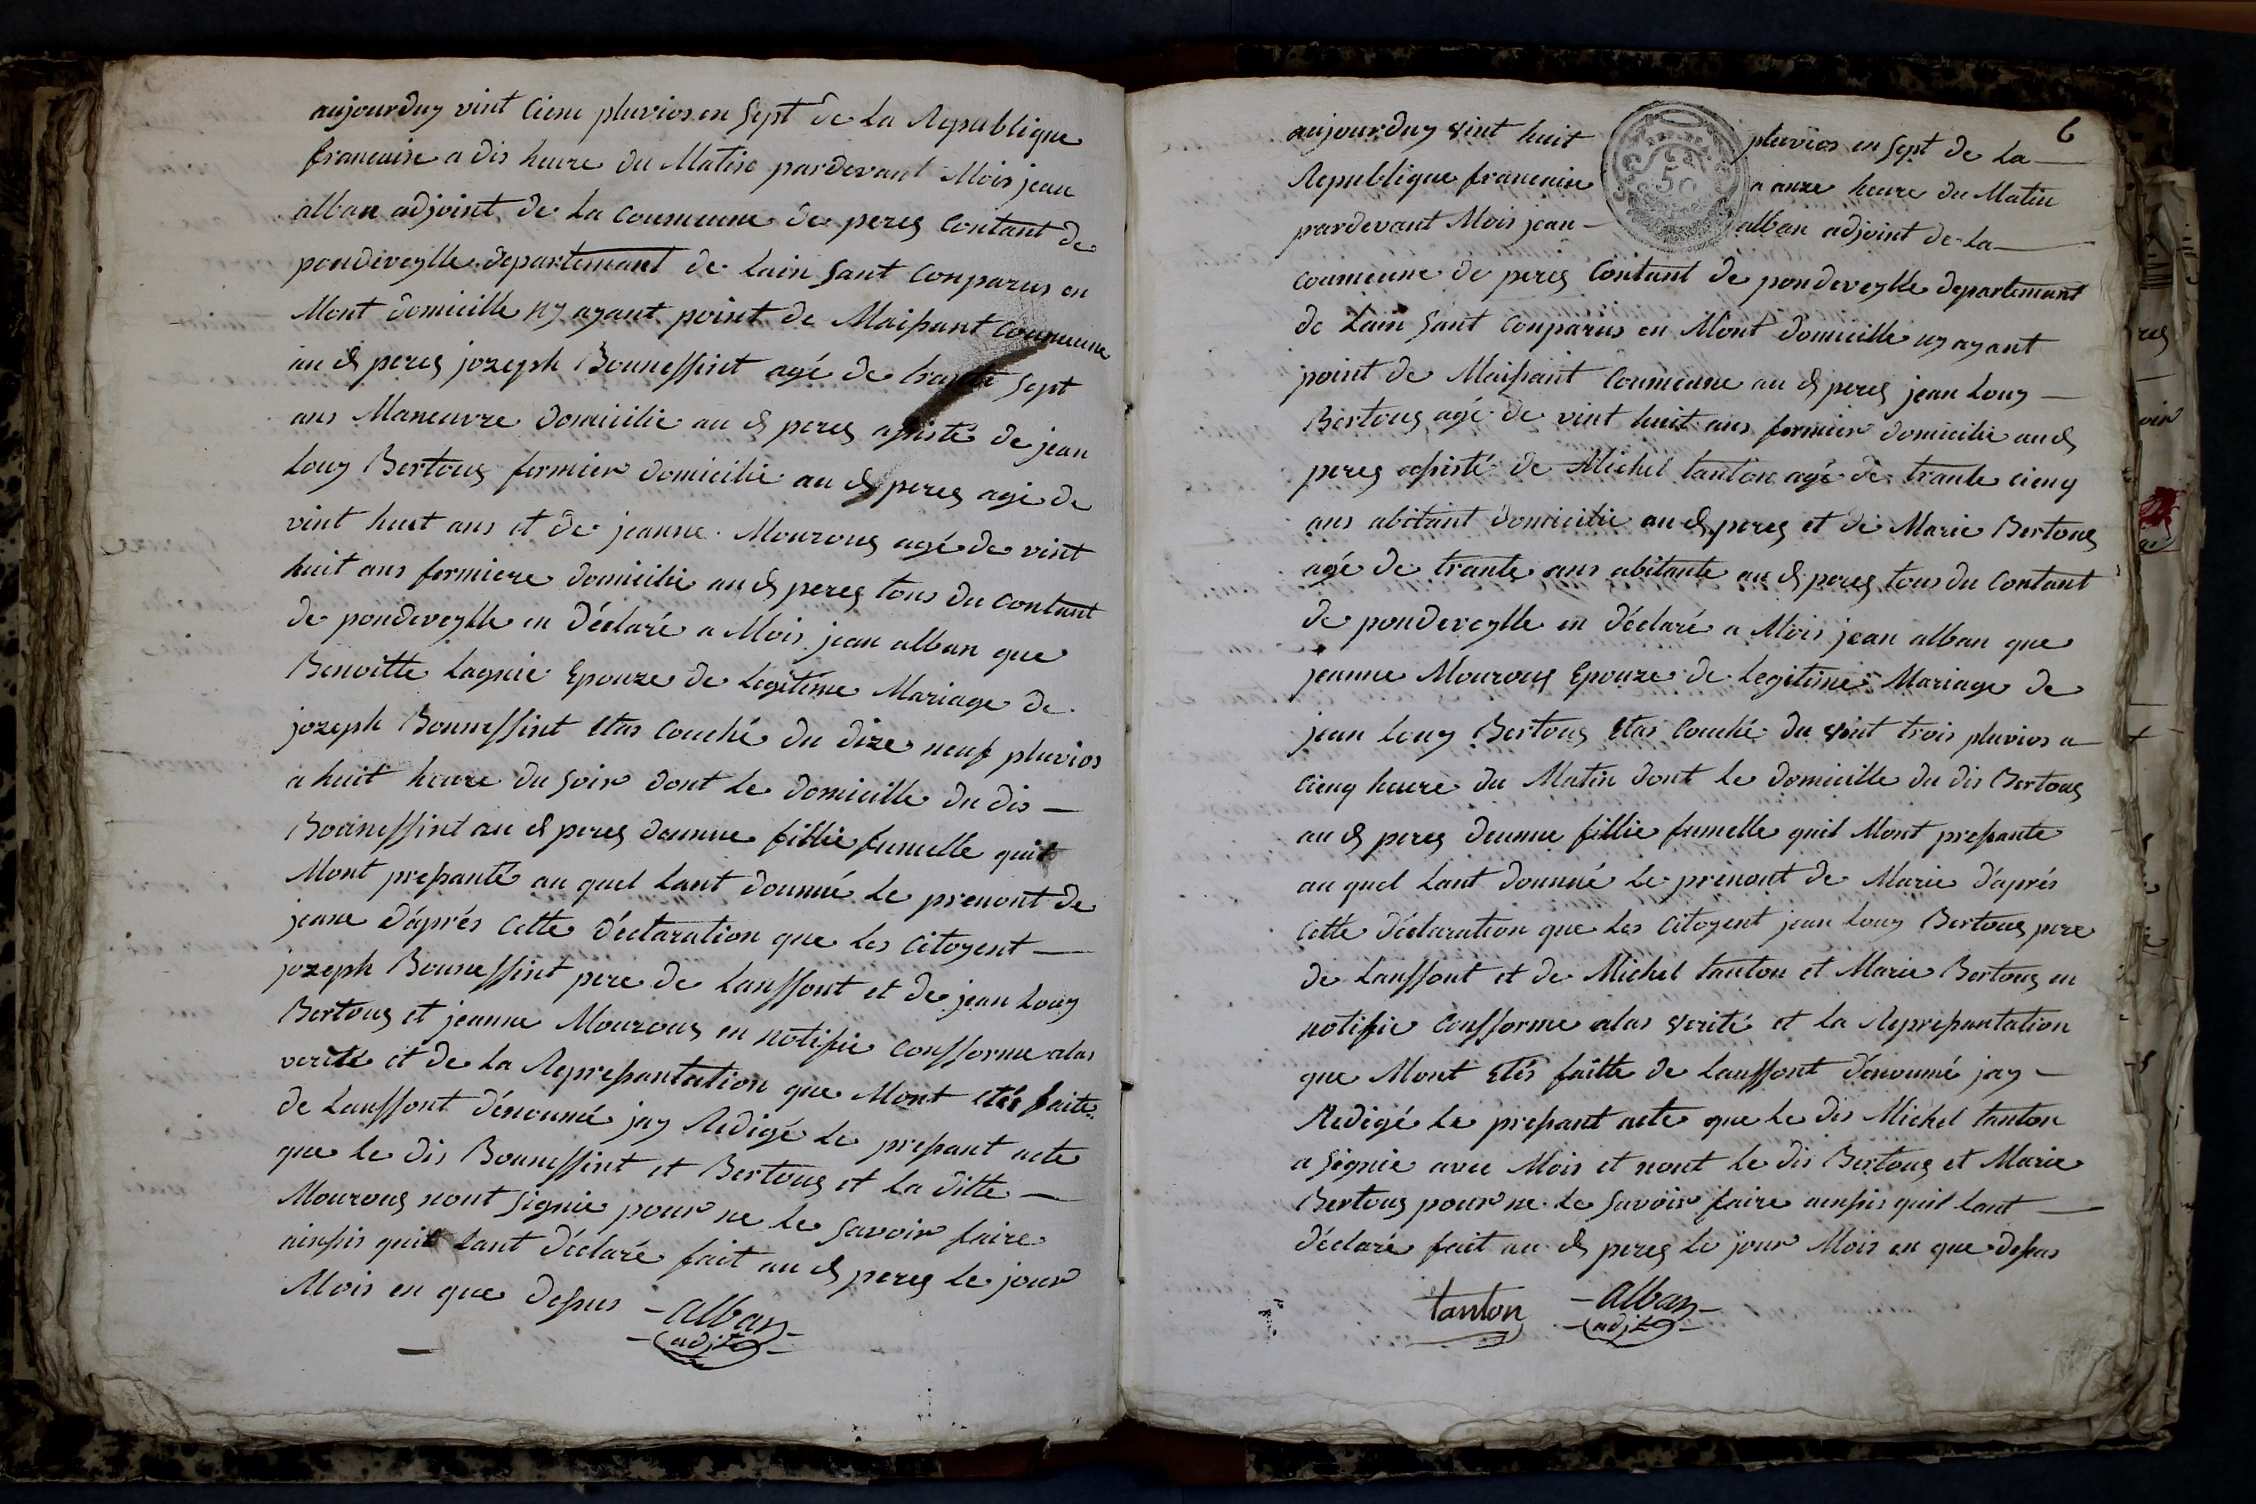 aujourduy vint cienc pluvios en sept de La Republique
francaise a dis heure du Matine pardevant Mois jean
alban adjoint de La Coumeune de perex Contant de
pondeveylle departement de Lain sant Conparus en
Mont domicille ny ayant point de Maissant Coumeune
au dt perex jozeph Bonnessint agé de trante sept
ans Maneuvre domicilie au dt perex assisté de jean
Louy Bertoux fermier domicilie au dt perex agé de
vint huit ans et de jeanne Mouroux agé de vint
huit ans fermiere domicilie au dt perex tous du Contant
de pondeveylle en déclaré a Mois jean alban que
Benoitte Lagnie Epouze de Legitime Mariage de
jozeph Bonnessint Etas Couché du dize neuf pluvios
a huit heure du soir dont Le domicille du dis
Bonnessint au dt perex deunne fillie fumelle quil
Mont pressanté au quel Lant donnné Le prenont de
jeane d'aprés Cette déctaration que Les Citoyent
jozeph Bonnessint pere de Lanffont et de jean Louy
Bertoux et jeanne Mouroux en notifie Confforme alas
verité et de La Repressantation que Mont Etés faite
de Lanffont dénoumé jay Redigé Le pressant acte
que Le dis Bonnessint et Bertoux et La ditte
Mouroux nont signie pour ne Le savoir faire
ainssis quil Lant déclaré fait au dt perex Le jour
Mois en que dessus - alban -
adjt
6
aujourduy vint huit pluvios en sept de La
Republique francaise a onze heure du Matin
pardevant Mois jean alban adjoint de La
50
Coumeune de perex Contant de pondeveylle departemant
de Lain sant Conparus en Mont domicille ny ayant
point de Maissant Coumeune au dt perex jean Louy
Bertoux agé de vint huit ans fermier domicilie au dt
perex assisté de Michel tanton agé de trante cienq
ans abitant domicilie au dt perex et de Marie Bertoux
agé de trante ans abitante au dt perex tous du Contant
de pondeveylle en déclaré a Mois jean alban que
jeanne Mouroux Epouze de Legitime Mariage de
jean Louy Bertoux Etas Couché du vint trois pluvios a
Cienq heure du Matin dont le domicille du dis Bertoux
au dt perex deunne fillie fumelle quil Mont pressante
au quel Lant donnné Le prenont de Marie d'aprés
Cette déclaration que Les Citoyent jean Louy Bertoux pere
de Lanffont et de Michel tanton et Marie Bertoux en
notifie Confforme alas verité et La Represantation
que Mont Etés faitte de Lanffont dénoumé jay
Redigé Le pressant acte que Le dis Michel tanton
a signie avec Mois et nont Le dis Bertoux et Marie
Bertoux pour ne Le savoir faire ainssis quil Lant
déclaré fait au dt perex Le jour Mois en que dessus
tanton - alban -
adjt